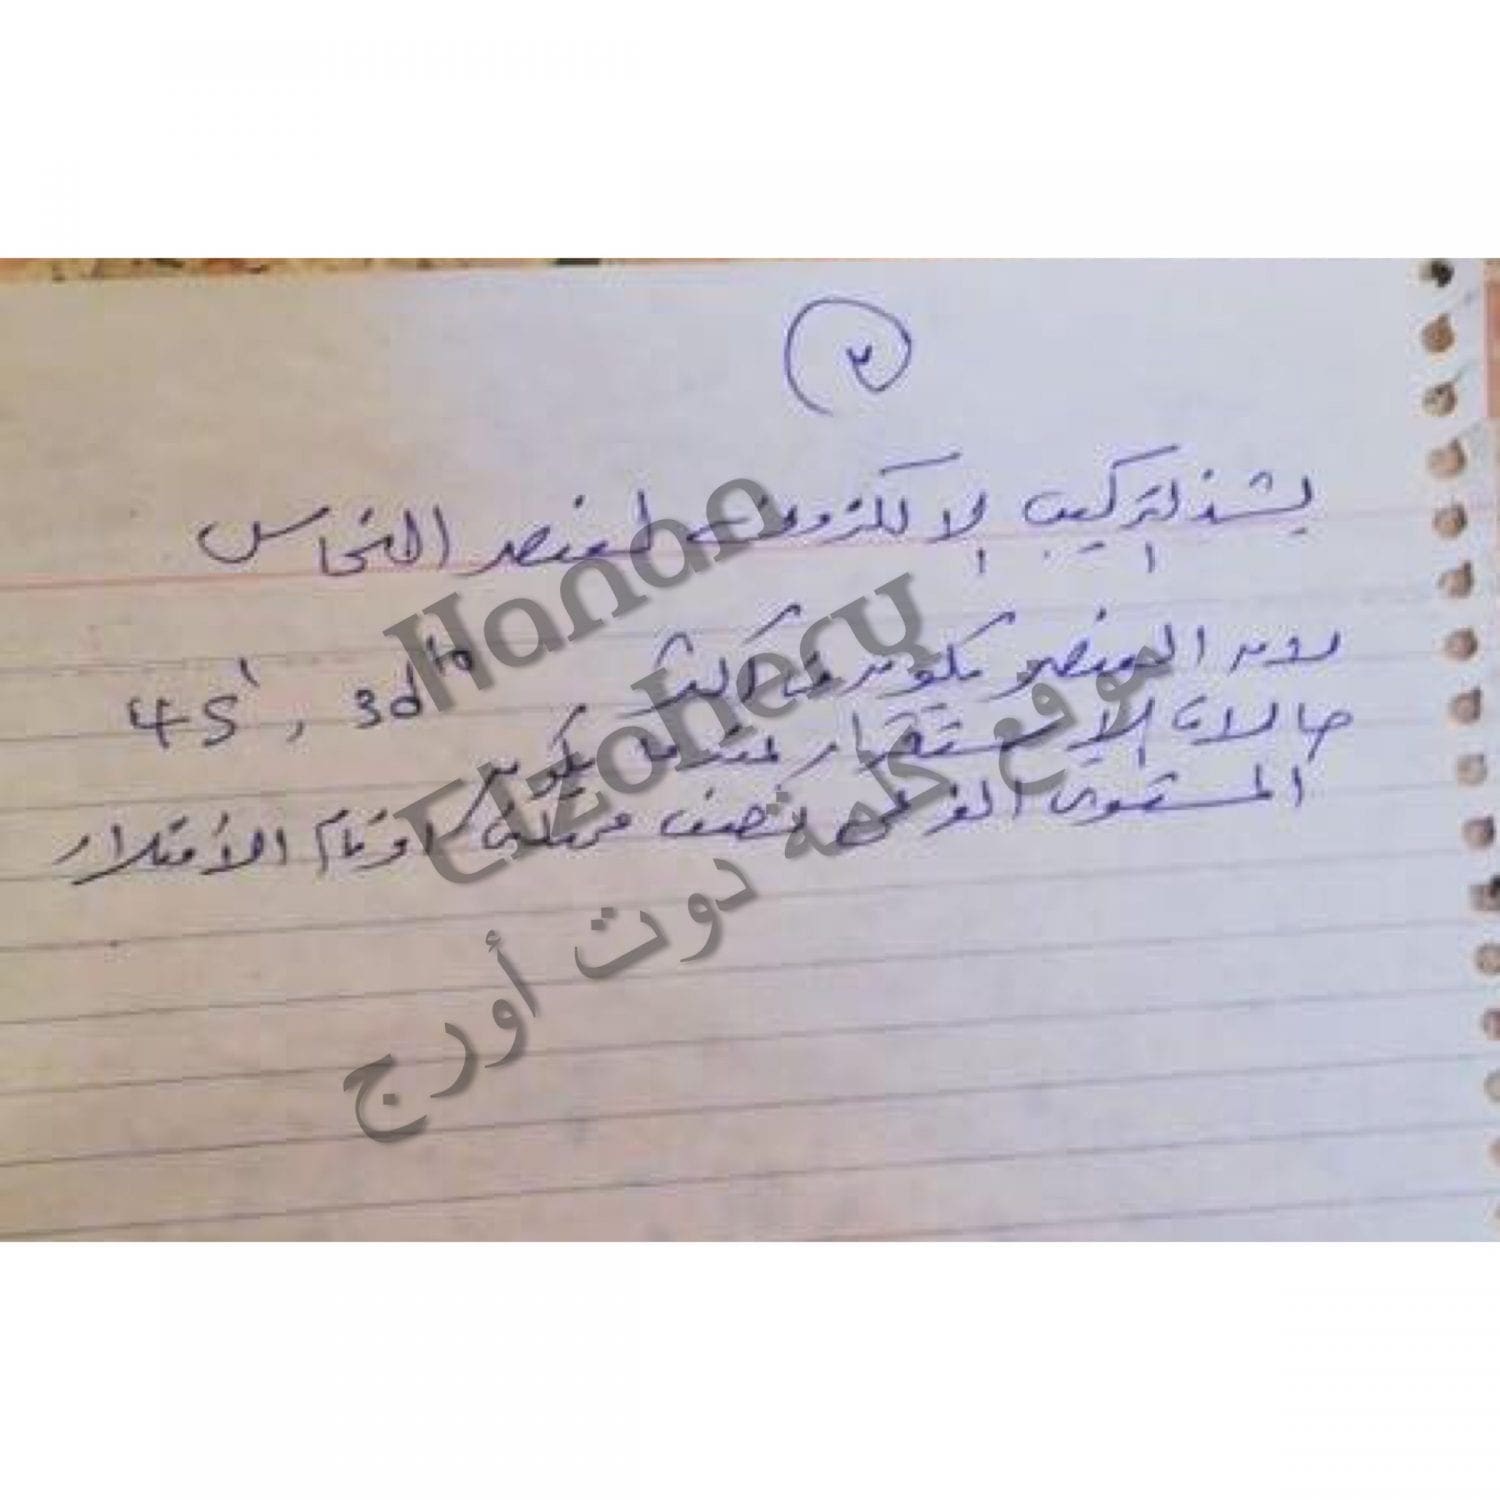 ٢
يشذ التركيب الإلكتروني لعنصر النحاس
لأن العنصر يكون في أكثر 4S¹, 3d¹⁰
حالات الإستقرار عندما يكون
المستوى الفرعي نصف ممتلئ أو تام الأمتلاء
Hanan
Elzohery
موقع كلمة دوت أورج